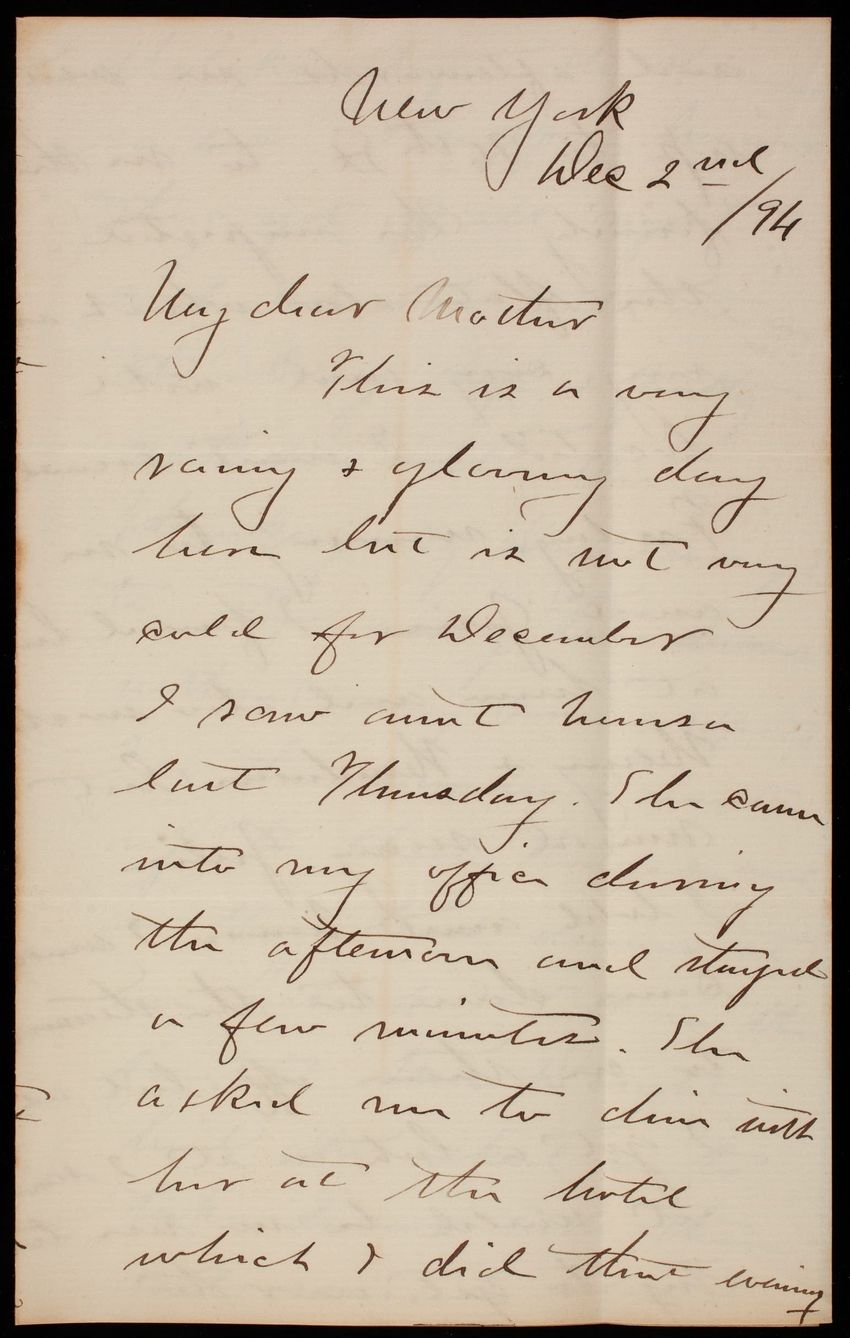 New York
Dec 2nd
/94
My dear Mother
This is a very
rainy & gloomy day
here but is not very
cold for December
I saw aunt
last Thursday. She came
into my office during
the afternoon and stayed
a few minutes. She
asked me to dine with
her at the hotel
which I did that evening